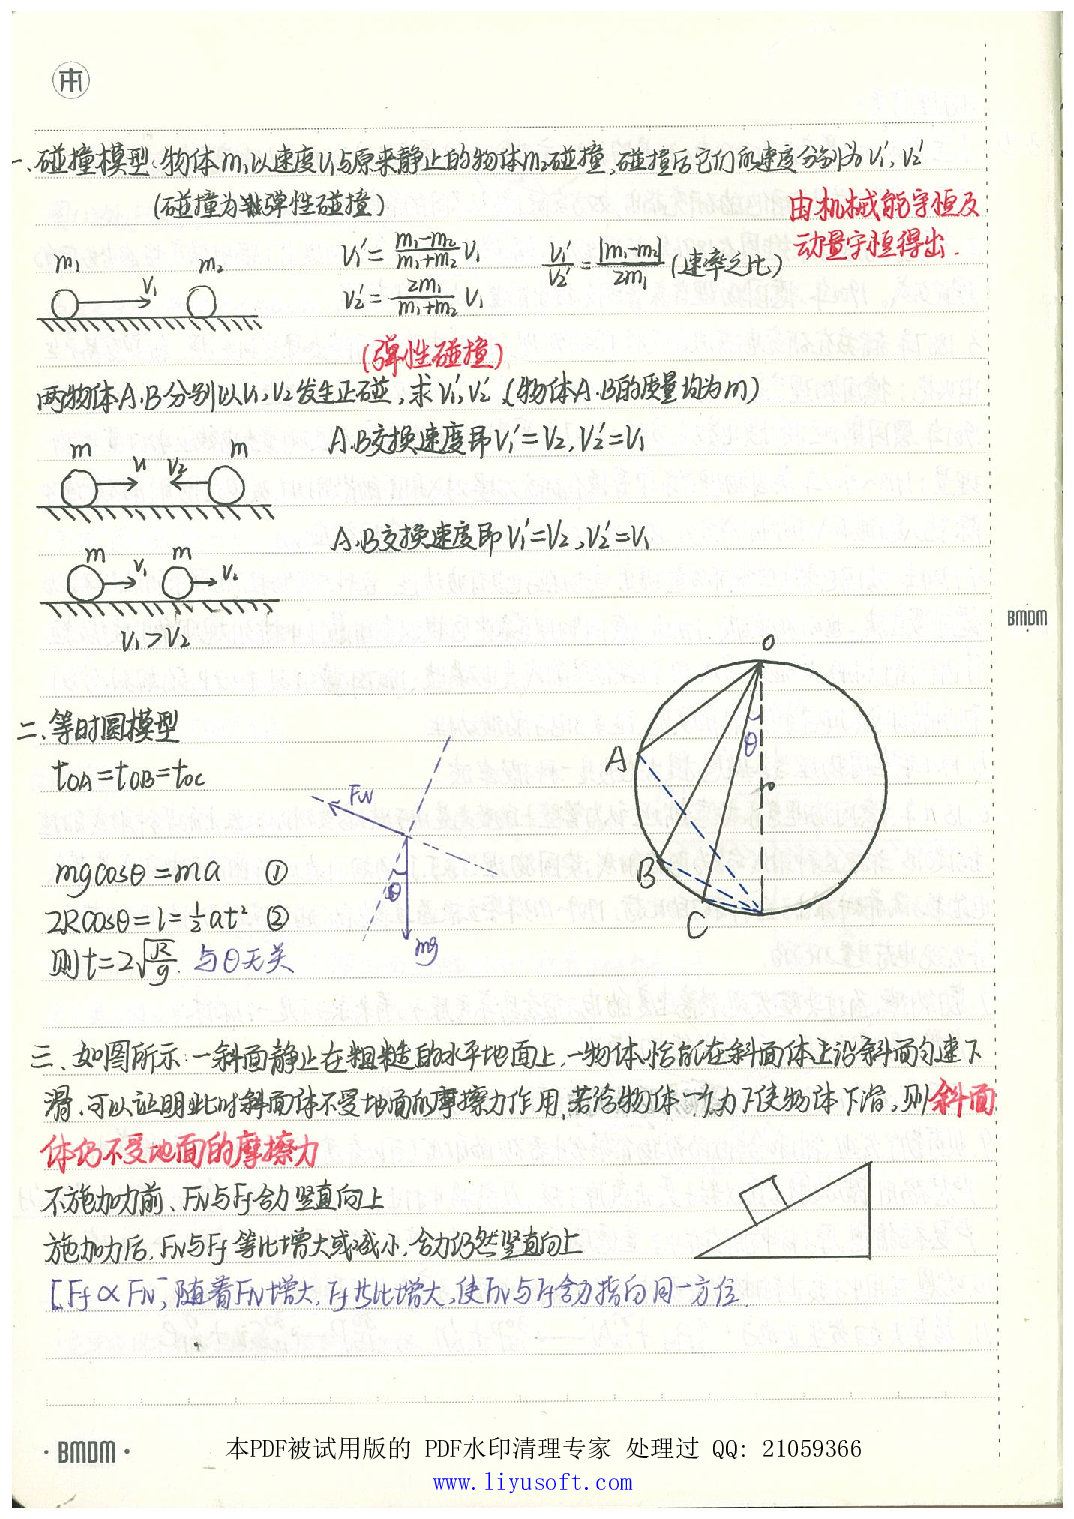 一、碰撞模型、物体m₁以速度V₁与原来静止的物体m₂碰撞,碰撞后它们的速度分别为V₁′, V₂′
(碰撞为弹性碰撞)
由机械能守恒及
动量守恒得出.
m₁ V₁ m₂
V₁′=(m₁-m₂)/(m₁+m₂) V₁
V₂′=2m₁/(m₁+m₂) V₁
V₁′/V₂′=|m₁-m₂|/2m₁ (速率之比)
(弹性碰撞)
两物体A、B分别以V₁、V₂发生正碰,求V₁′、V₂′ (物体A、B的质量均为m)
A、B交换速度即V₁′=V₂, V₂′=V₁
m V₁ V₂ m
A、B交换速度即V₁′=V₂, V₂′=V₁
m V₁ m V₂
V₁>V₂
BMDM
二、等时圆模型
tOA=tOB=tOC
mgcosθ=ma ①
2Rcosθ=l=½at² ②
则t=2√(R/g) 与θ无关
FN
θ
mg
O
θ
A
B
C
三、如图所示一斜面静止在粗糙的水平地面上,一物体恰能在斜面体上沿斜面匀速下
滑、可以证明此时斜面体不受地面的摩擦力作用,若给物体一个力F使物体下滑,则斜面
体仍不受地面的摩擦力
不施加力前、FN与Ff合力竖直向上
施加力后,FN与Ff等比增大或减小,合力仍然竖直向上
[Ff∝FN,随着FN增大,Ff也增大,使FN与Ff合力指向同一方位.
·BMDM·
本PDF被试用版的 PDF水印清理专家 处理过 QQ: 21059366
www.liyusoft.com